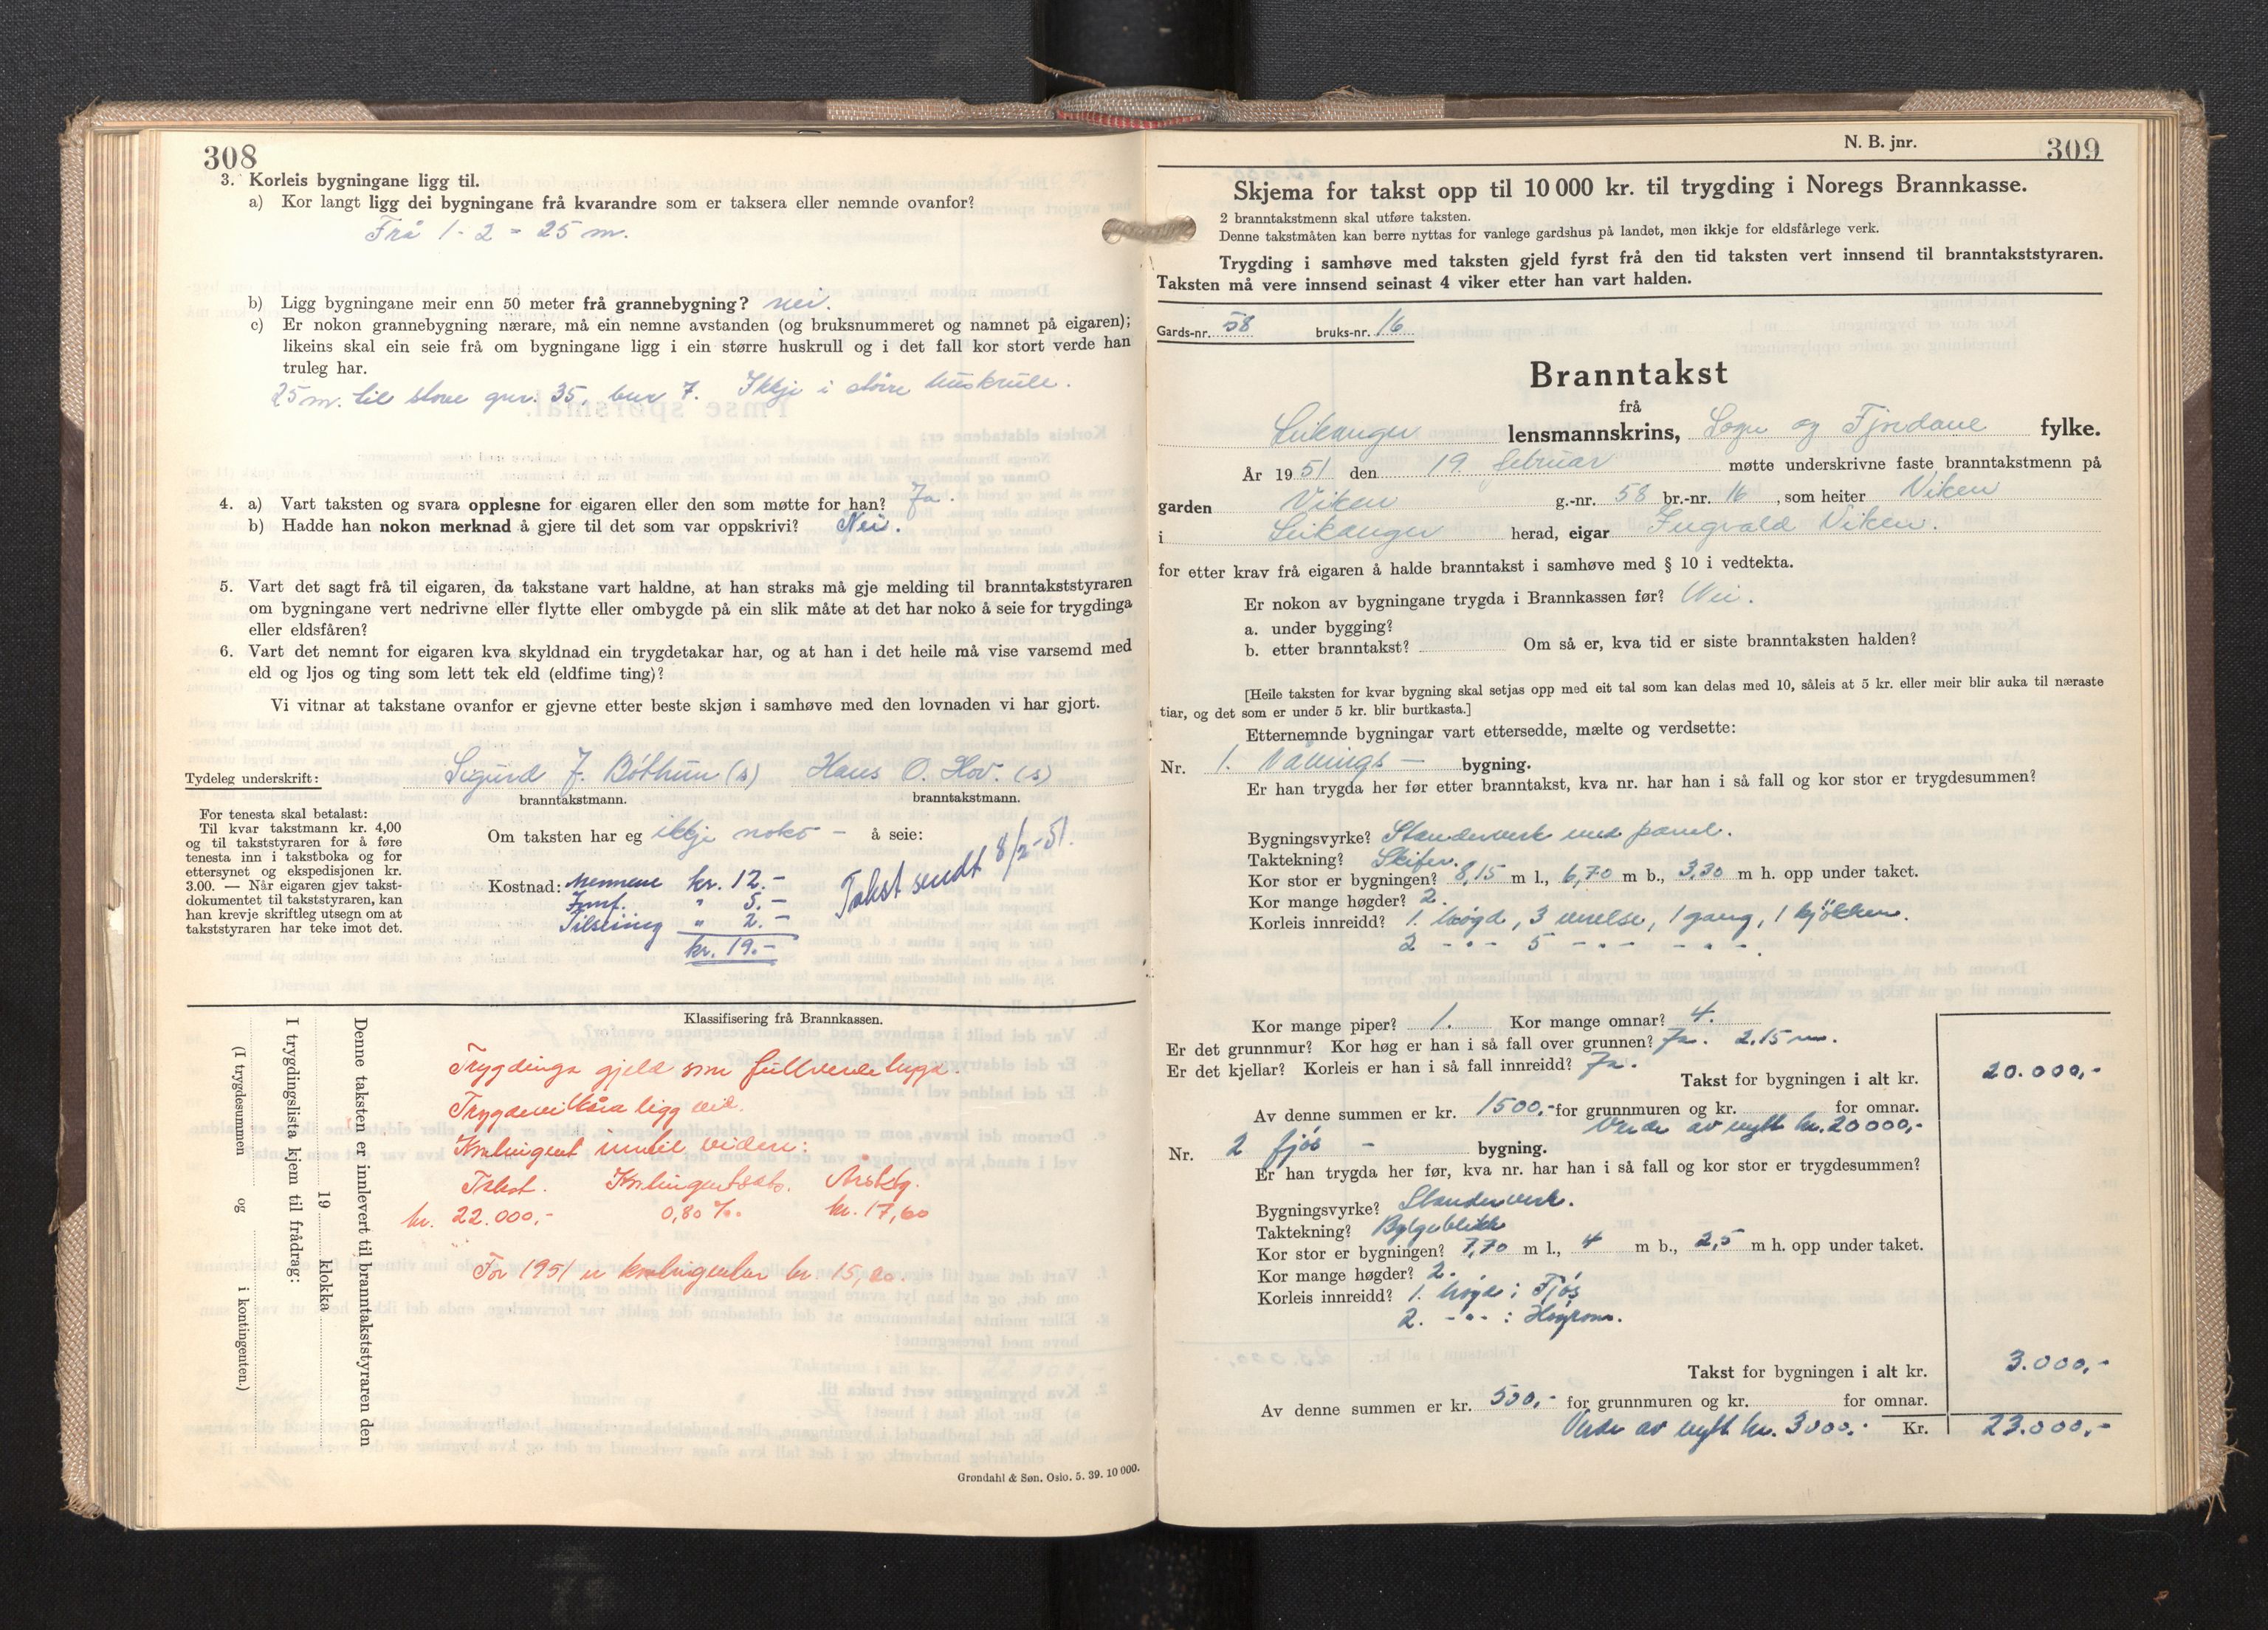 308
3. Korleis bygningane ligg til.
a) Kor langt ligg dei bygningane frå kvarandre som er taksera eller nemnde ovanfor?
Frå 1 - 2 = 25 m.
b) Ligg bygningane meir enn 50 meter frå grannebygning? nei.
c) Er nokon grannebygning nærare, må ein nemne avstanden (og bruksnummeret og namnet på eigaren);
likeins skal ein seie frå om bygningane ligg i ein større huskrull og i det fall kor stort verde han
truleg har.
25 m. til stove gnr. 35, bnr 7. Ikkje i større huskrull.
4. a) Vart taksten og svara opplesne for eigaren eller den som møtte for han? Ja.
b) Hadde han nokon merknad å gjere til det som var oppskrivi? Nei.
5. Vart det sagt frå til eigaren, da takstane vart haldne, at han straks må gje melding til branntakststyraren
om bygningane vert nedrivne eller flytte eller ombygde på ein slik måte at det har noko å seie for trygdinga
eller eldsfåren?
6. Vart det nemnt for eigaren kva skyldnad ein trygdetakar har, og at han i det heile må vise varsemd med
eld og ljos og ting som lett tek eld (eldfime ting)?
Vi vitnar at takstane ovanfor er gjevne etter beste skjøn i samhøve med den lovnaden vi har gjort.
Tydeleg underskrift: Sigurd J. Böthun (s) Hans O. Hov. (s)
branntakstmann. branntakstmann.
For tenesta skal betalast:
Til kvar takstmann kr. 4,00
og til takststyraren for å føre
tenesta inn i takstboka og for
ettersynet og ekspedisjonen kr.
3.00. — Når eigaren gjev takst-
dokumentet til takststyraren, kan
han krevje skriftleg utsegn om at
takststyraren har teke imot det.
Om taksten har eg ikkje noko – å seie:
Kostnad: Mennene kr. 12.-
Innf. " 5.-
Tilsliing " 2.-
kr. 19.-
Takst sendt 8/2-51.
Klassifisering frå Brannkassen.
Trygdinga gjeld som fullverdetrygd.
Trygdevilkåra ligg ved.
Kontingent inntil vidare:
Takst. Kontingentsats. Årsktg.
kr. 22.000,- 0,80 ‰ kr. 17,60
For 1951 er kontingenten kr. 15,
Denne taksten er innlevert til branntakststyraren den
19 klokka
I trygdingslista kjem til frådrag:
(I trygdesummen og i kontingenten.)
Grøndahl & Søn, Oslo. 5. 39. 10 000.
N. B. jnr. 309
Skjema for takst opp til 10 000 kr. til trygding i Noregs Brannkasse.
2 branntakstmenn skal utføre taksten.
Denne takstmåten kan berre nyttas for vanlege gardshus på landet, men ikkje for eldsfårlege verk.
Trygding i samhøve med taksten gjeld fyrst frå den tid taksten vert innsend til branntakststyraren.
Taksten må vere innsend seinast 4 viker etter han vart halden.
Gards-nr. 58 bruks-nr. 16
Branntakst
frå
Leikanger lensmannskrins, Sogn og Fjordane fylke.
År 1951 den 19. februar møtte underskrivne faste branntakstmenn på
garden Viken g.-nr. 58 br.-nr. 16, som heiter Viken
i Leikanger herad, eigar Ingvald Viken.
for etter krav frå eigaren å halde branntakst i samhøve med § 10 i vedtekta.
Er nokon av bygningane trygda i Brannkassen før? Nei.
a. under bygging?
b. etter branntakst? Om så er, kva tid er siste branntaksten halden?
[Heile taksten for kvar bygning skal setjas opp med eit tal som kan delas med 10, såleis at 5 kr. eller meir blir auka til næraste
tiar, og det som er under 5 kr. blir burtkasta.]
Etternemnde bygningar vart ettersedde, mælte og verdsette:
Nr. 1. Vånings – bygning.
Er han trygda her før etter branntakst, kva nr. har han i så fall og kor stor er trygdesummen?
Bygningsvyrke? Standerverk med panel.
Taktekning? Skifer.
Kor stor er bygningen? 8,15 m l., 6,70 m b., 3,30 m h. opp under taket.
Kor mange høgder? 2.
Korleis innreidd? 1. høgd, 3 verelse, 1 gang, 1 kjökken.
2 - " - 5 - " - - " -
Kor mange piper? 1. Kor mange omnar? 4.
Er det grunnmur? Kor høg er han i så fall over grunnen? Ja. 2,15 m.
Er det kjellar? Korleis er han i så fall innreidd? Ja.
Takst for bygningen i alt kr. 20.000,-
Av denne summen er kr. 1500,- for grunnmuren og kr. for omnar.
Verde av nytt kr. 20000,-
Nr. 2 fjös - bygning.
Er han trygda her før, kva nr. har han i så fall og kor stor er trygdesummen?
Bygningsvyrke? Standerverk.
Taktekning? Bylgeblikk
Kor stor er bygningen? 7,70 m l., 4 m b., 2,5 m h. opp under taket.
Kor mange høgder? 2.
Korleis innreidd? 1. högd: Fjös
2. - " - : Høyrom.
Takst for bygningen i alt kr. 3.000,-
Av denne summen er kr. 500,- for grunnmuren og kr. for omnar.
Verde av nytt kr. 3000.- Kr. 23.000,-